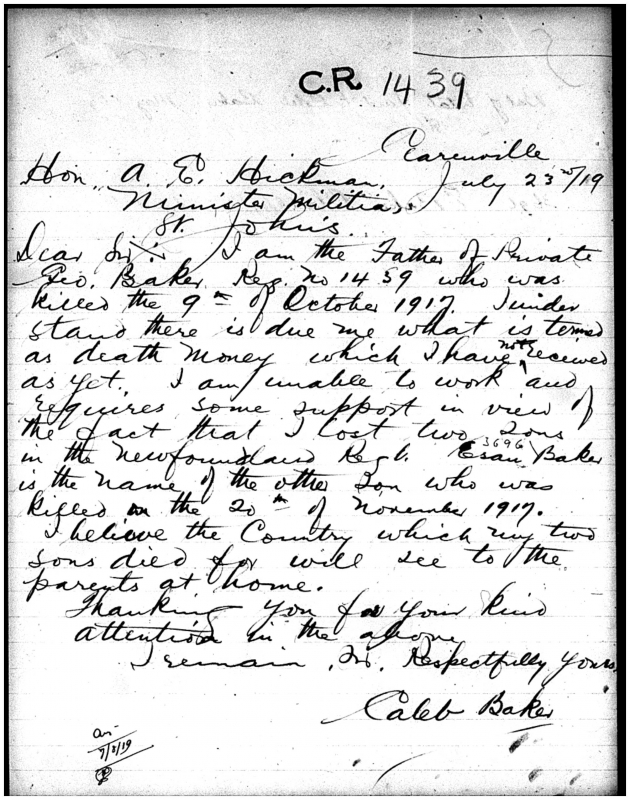 C.R. 1439
Clarenville
Hon. A. E. Hickman, July 23rd/19
Minister Militia,
St. John's.
Dear Sir:- I am the Father of Private
Geo. Baker, Reg. No 1439 who was
killed the 9th of October 1917. I under
stand there is due me what is termed
as death money which I have not received
as yet. I am unable to work and
requires some support in view of
the fact that I lost two sons
in the Newfoundland Regt. Esau 3696 Baker
is the name of the other son who was
killed on the 20th of November 1917.
I believe the Country which my two
sons died for will see to the
parents at home.
Thanking you for your kind
attention in the above
I remain, Sir, Respectfully Yours,
Caleb Baker
7/8/19